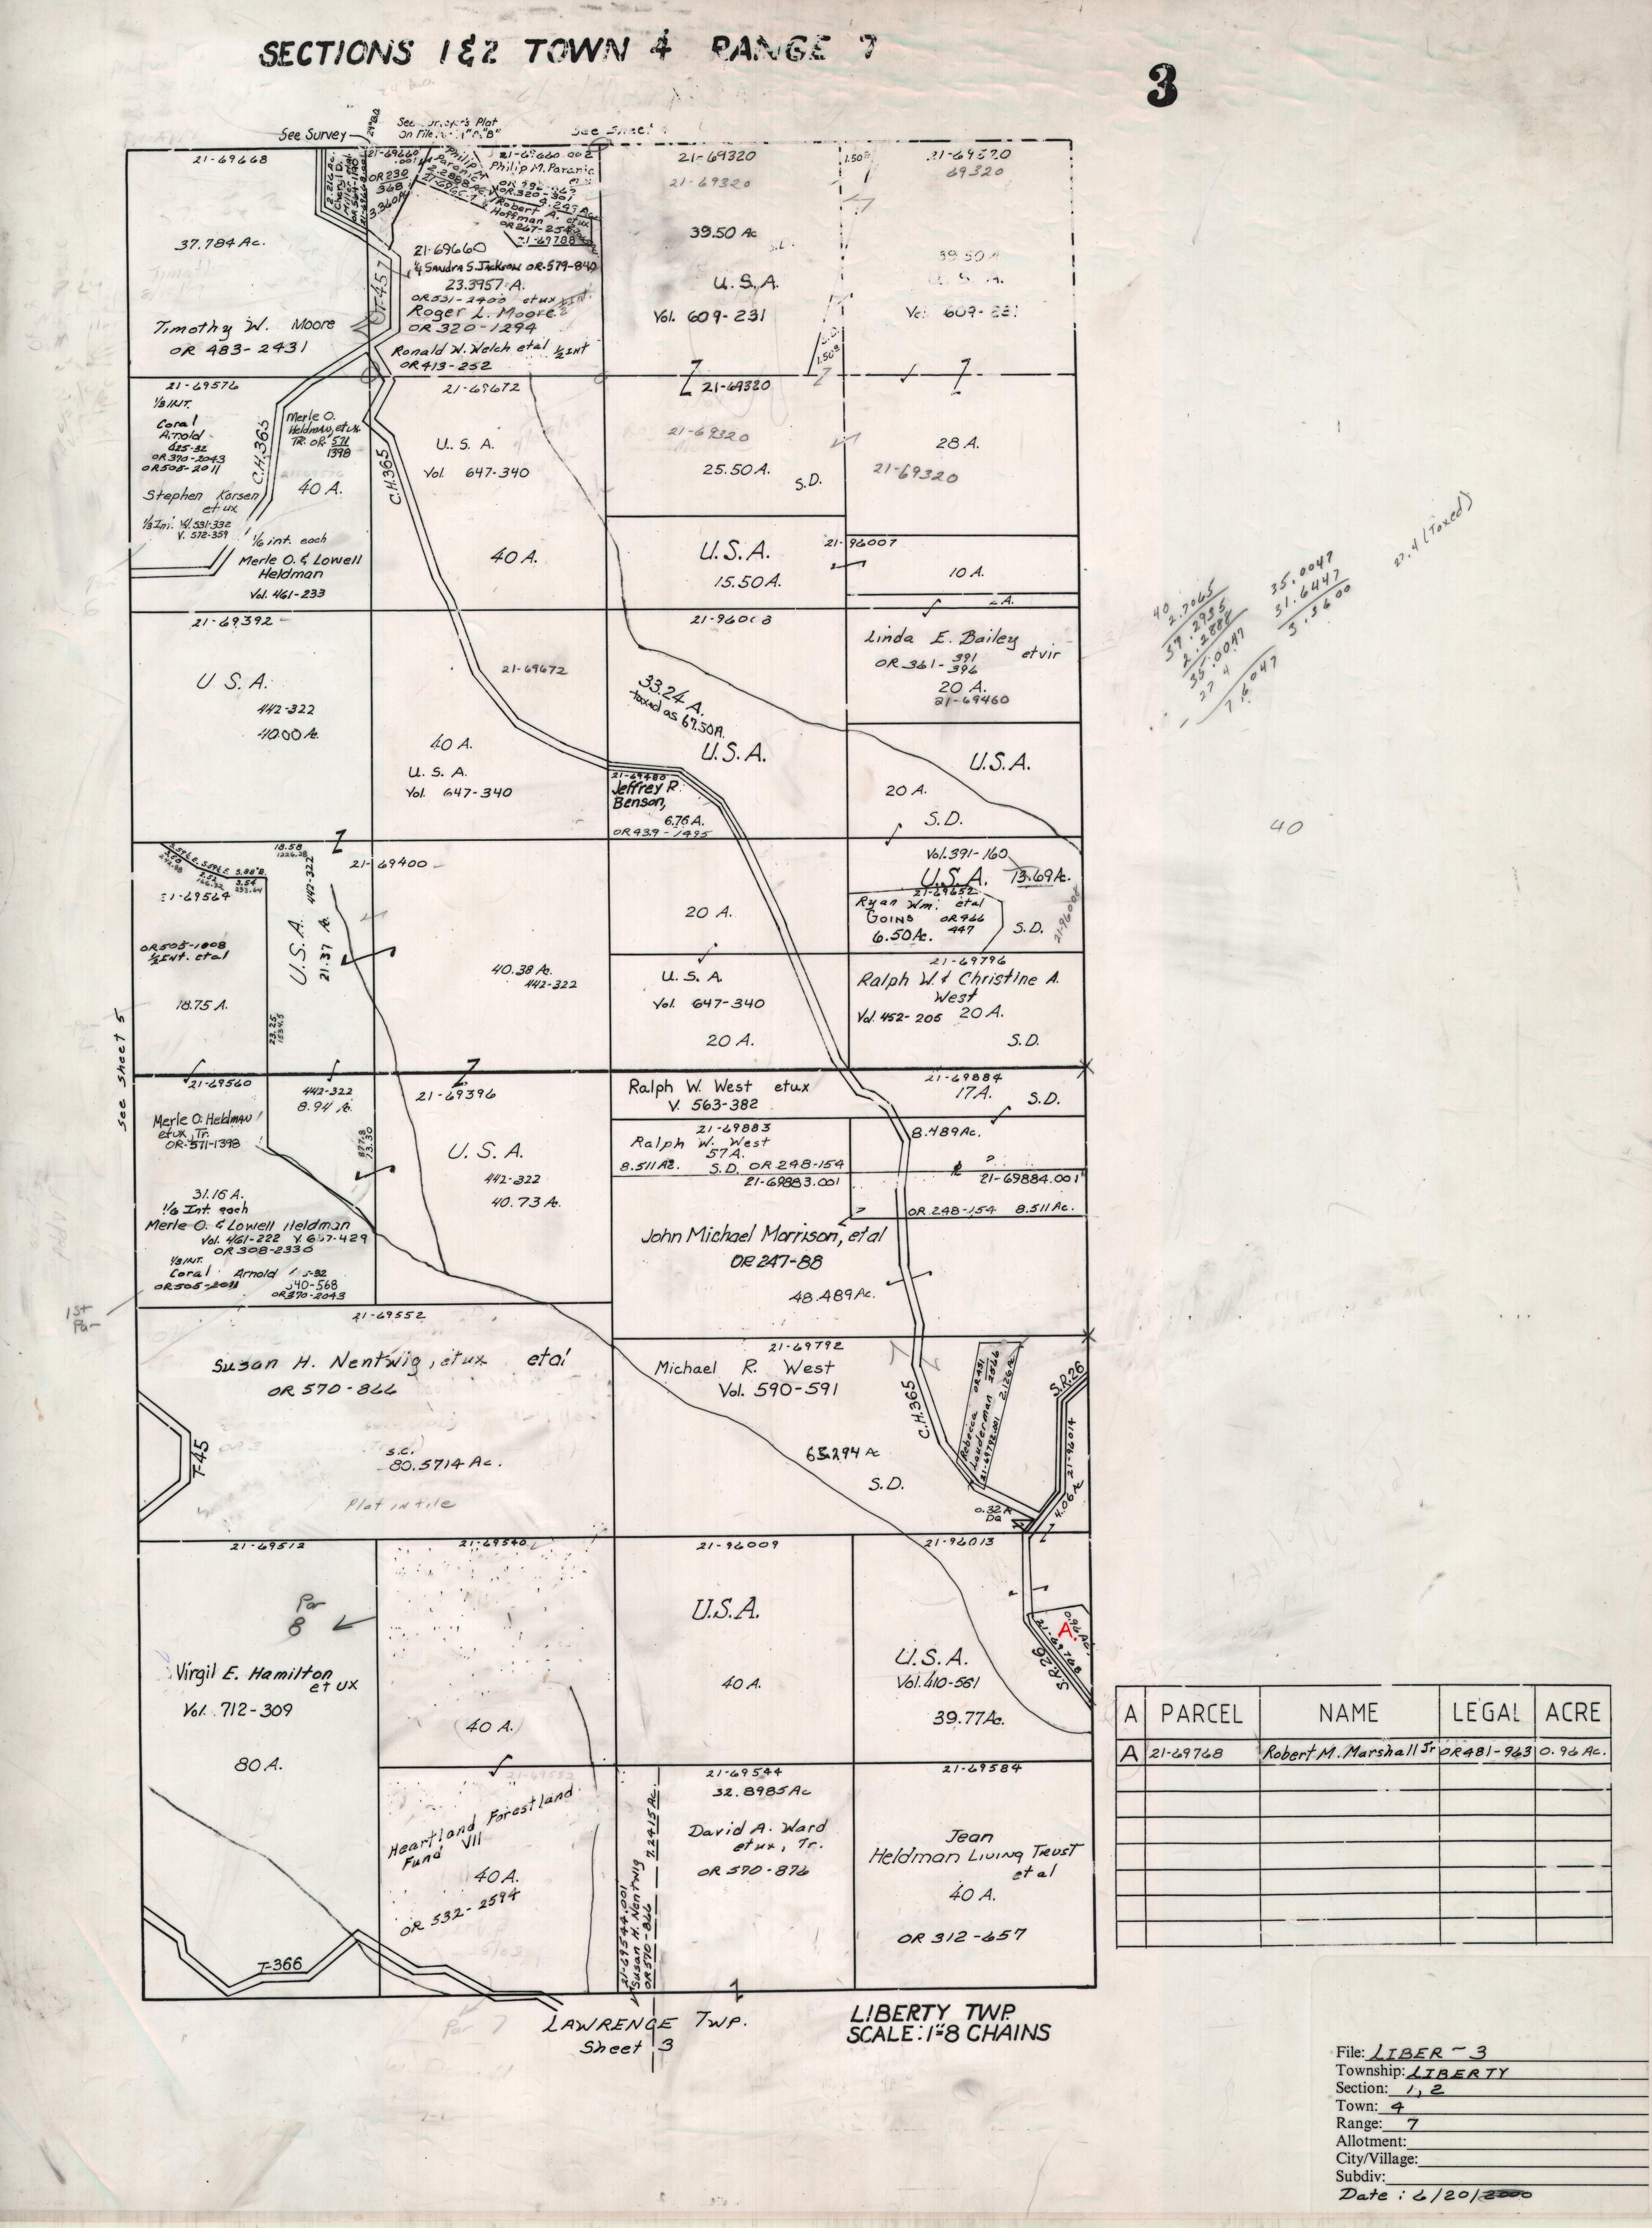 SECTIONS 1&2 TOWN 4 RANGE 7
3
See Survey
See Surveyor's Plat
On File
See Sheet
21-69668
37.784 Ac.
Timothy W. Moore
OR 483-2431
21-69660
.001
OR 230
368
3.360A
Philip
Paranic
2.2888 Ac.
21-69660.002
Philip M. Paranic
Robert A. etux
Hoffman
OR 267-254
21-69788
T-457
21-69660
¼ Sandra S. Jackson OR-579-840
23.3957 A.
OR 531-2400 etux
Roger L. Moore
OR 320-1294
Ronald W. Welch etal ½ INT
OR 413-252
21-69320
21-69320
39.50 Ac
S.D.
U.S.A.
Vol. 609-231
1.50
1.50
21-69320
69320
39.50 A
U.S.A.
Vol 609-231
21-69576
⅓ INT.
Coral
Arnold
d25-32
OR 370-2043
OR 505-2011
Stephen Karsen
etux
⅓ Int. Vol. 531-332
V. 572-359
C.H.365
Merle O.
Heldman, etux
TR. OR. 571
1398
40 A.
⅙ int. each
Merle O. & Lowell
Heldman
Vol. 461-233
21-69672
U.S.A.
Vol. 647-340
C.H.365
40 A.
21-69320
21-69320
25.50 A.
S.D.
28 A.
21-69320
U.S.A.
15.50 A.
21-96007
10 A.
2 A.
21-69392
U.S.A.
442-322
40.00 Ac.
21-69672
40 A.
U.S.A.
Vol. 647-340
21-96008
33.24 A.
taxed as 67.50A.
U.S.A.
Linda E. Bailey
etvir
OR 361-391
396
20 A.
21-69460
U.S.A.
20 A.
S.D.
21-69480
Jeffrey R.
Benson,
6.76 A.
OR 439-1495
40
2.7065
37.2935
2.2888
35.0047
27 4
7.6047
35.0047
31.6447
3.3600
27.4 (Taxed)
40
18.58
1226.28
442-322
21-69564
OR 505-1008
½ INT. etal
18.75 A.
U.S.A.
21.37 A.
23.25
1534.5
21-69400
40.38 Ac.
442-322
20 A.
U.S.A.
Vol. 647-340
20 A.
Vol. 391-160
U.S.A.
13.69 Ac.
21-69652
Ryan Wm. etal
GOINS OR 466
447
6.50 Ac.
S.D.
21-96008
21-69796
Ralph W. & Christine A.
West
Vol. 452-205 20 A.
S.D.
See sheet 5
21-69560
Merle O. Heldman
etux, Tr.
OR-571-1398
442-322
8.94 Ac.
877.8
13.30
31.16 A.
⅙ Int. each
Merle O. & Lowell Heldman
Vol. 461-222 V. 657-429
OR 308-2330
⅓ INT.
Coral Arnold
OR 505-2011
OR 370-2043
21-69396
U.S.A.
442-322
40.73 Ac.
Ralph W. West etux
V. 563-382
21-69884
17 A.
S.D.
21-69883
Ralph W. West
57 A.
8.511 Ac. S.D. OR 248-154
21-69883.001
8.489 Ac.
21-69884.001
OR 248-154 8.511 Ac.
John Michael Morrison, etal
OR 247-88
48.489 Ac.
1st
Par
21-69552
Susan H. Nentwig, etux etal
OR 570-866
T-45
S.C.
80.5714 Ac.
Plat in file
21-69792
Michael R. West
Vol. 590-591
C.H.365
Rebecca OR 491
Lauderman 2566
21-69792.001 2.126 A
S.R.26
21-96014
4.06 Ac
63.294 Ac
S.D.
0.32 A
21-69512
Par
8
Virgil E. Hamilton
et ux
Vol. 712-309
80 A.
T-366
21-69540
(40 A.)
21-96009
U.S.A.
40 A.
21-96013
U.S.A.
Vol. 410-561
39.77 Ac.
0.96 Ac.
A.
21-69768
S.R.26
Heartland Forestland
Fund VII
40 A.
OR 532-2594
21-69544.001
Susan H. Nentwig
OR 570-866 7.2415 Ac.
21-69544
32.8985 Ac
David A. Ward
etux, Tr.
OR 570-876
21-69584
Jean
Heldman Living Trust
et al
40 A.
OR 312-657
A PARCEL NAME LEGAL ACRE
A 21-69768 Robert M. Marshall Jr OR 481-963 0.96 Ac.
Par 7
LAWRENCE TWP.
Sheet 3
LIBERTY TWP.
SCALE: 1"=8 CHAINS
File: LIBER-3
Township: LIBERTY
Section: 1, 2
Town: 4
Range: 7
Allotment:
City/Village:
Subdiv:
Date: 6/20/2000